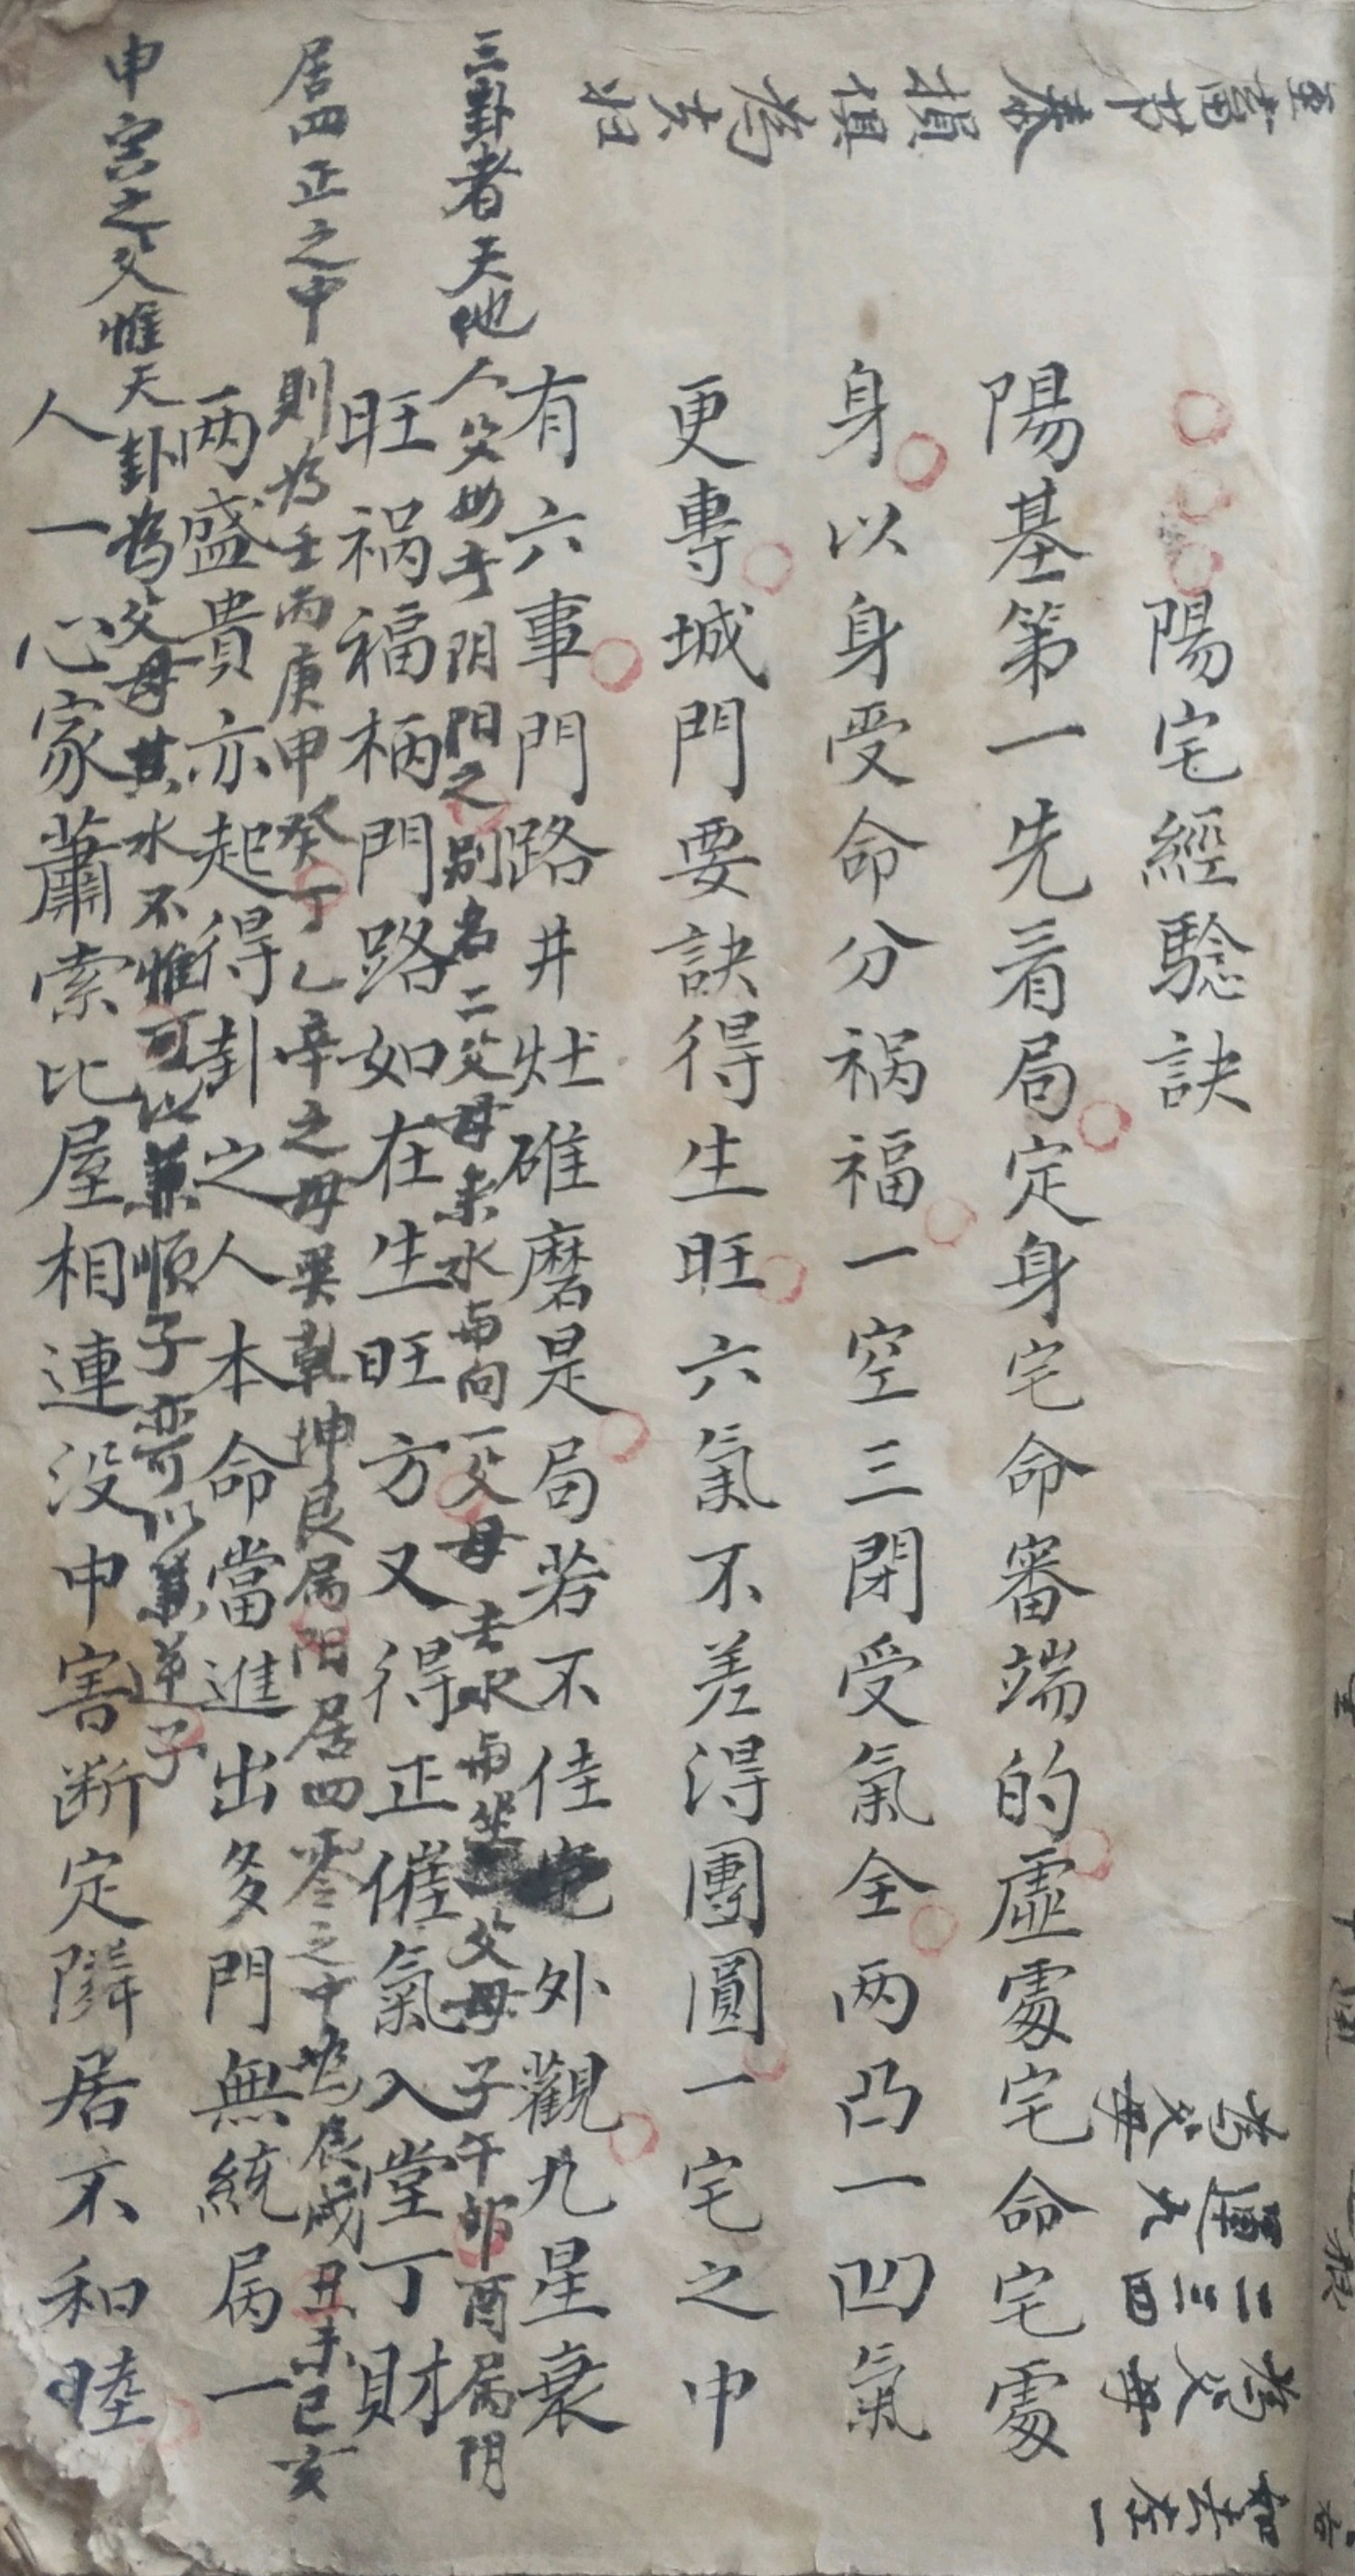 陽宅經驗訣
陽基第一先看局定身宅命審端的虛處宅命宅處
身以身受命分祸福一空三閉受氣全两凸一凹氣
更專城門要訣得生旺六氣不差得團圓一宅之中
有六事門路井灶碓磨是局若不佳宅外觀九星衰
三卦者天地人父母去阴阳之别名二父母来水与向一父母去水与坐一父母子午卯酉属阴
旺祸福柄門路如在生旺方又得正催氣入堂丁財
居四正之中則为壬丙庚甲癸丁乙辛之母巽乾坤艮属阳居四零之中为辰戌丑未巳亥
两盛貴亦起得卦之人本命當進出多門無統局一
申宮之父惟天卦為父母其水不惟可以兼順子亦可以兼逆子
人一心家蕭索比屋相連没申害断定隣居不和睦
為父母
運九
二三四
為父母
如去在一